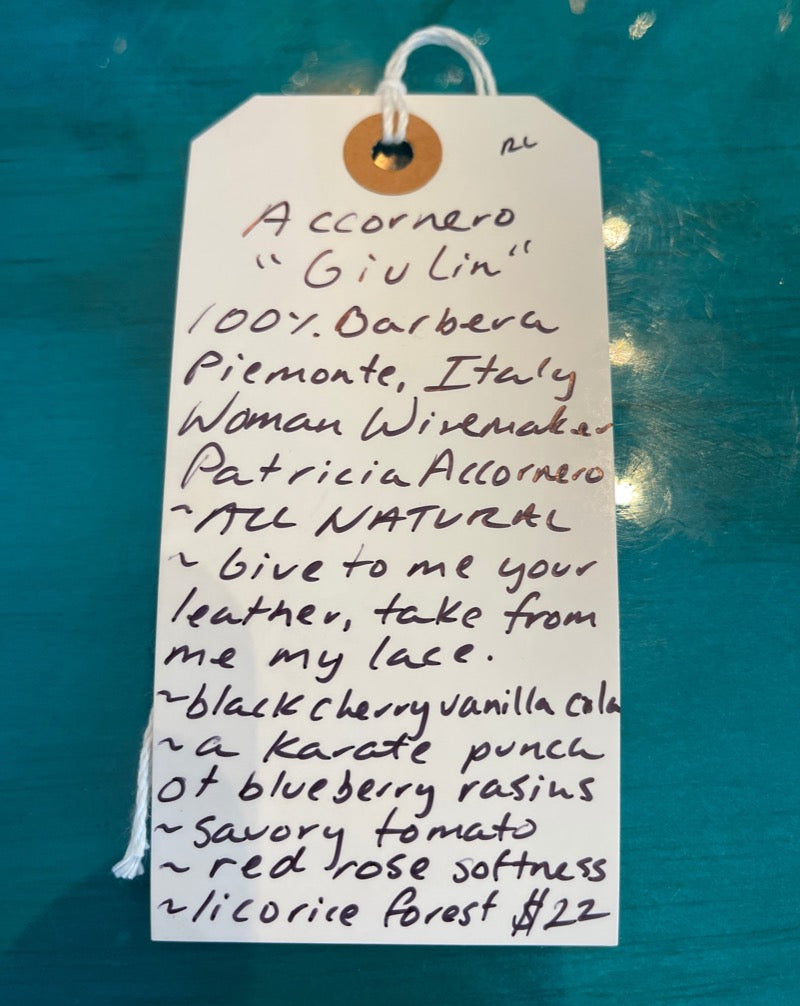 RL
Accornero
"Giulin"
100% Barbera
Piemonte, Italy
Woman Winemaker
Patricia Accornero
~ALL NATURAL
~ Give to me your
leather, take from
me my lace.
~black cherry vanilla cola
~a karate punch
of blueberry rasins
~savory tomato
~ red rose softness
~licorice forest $22